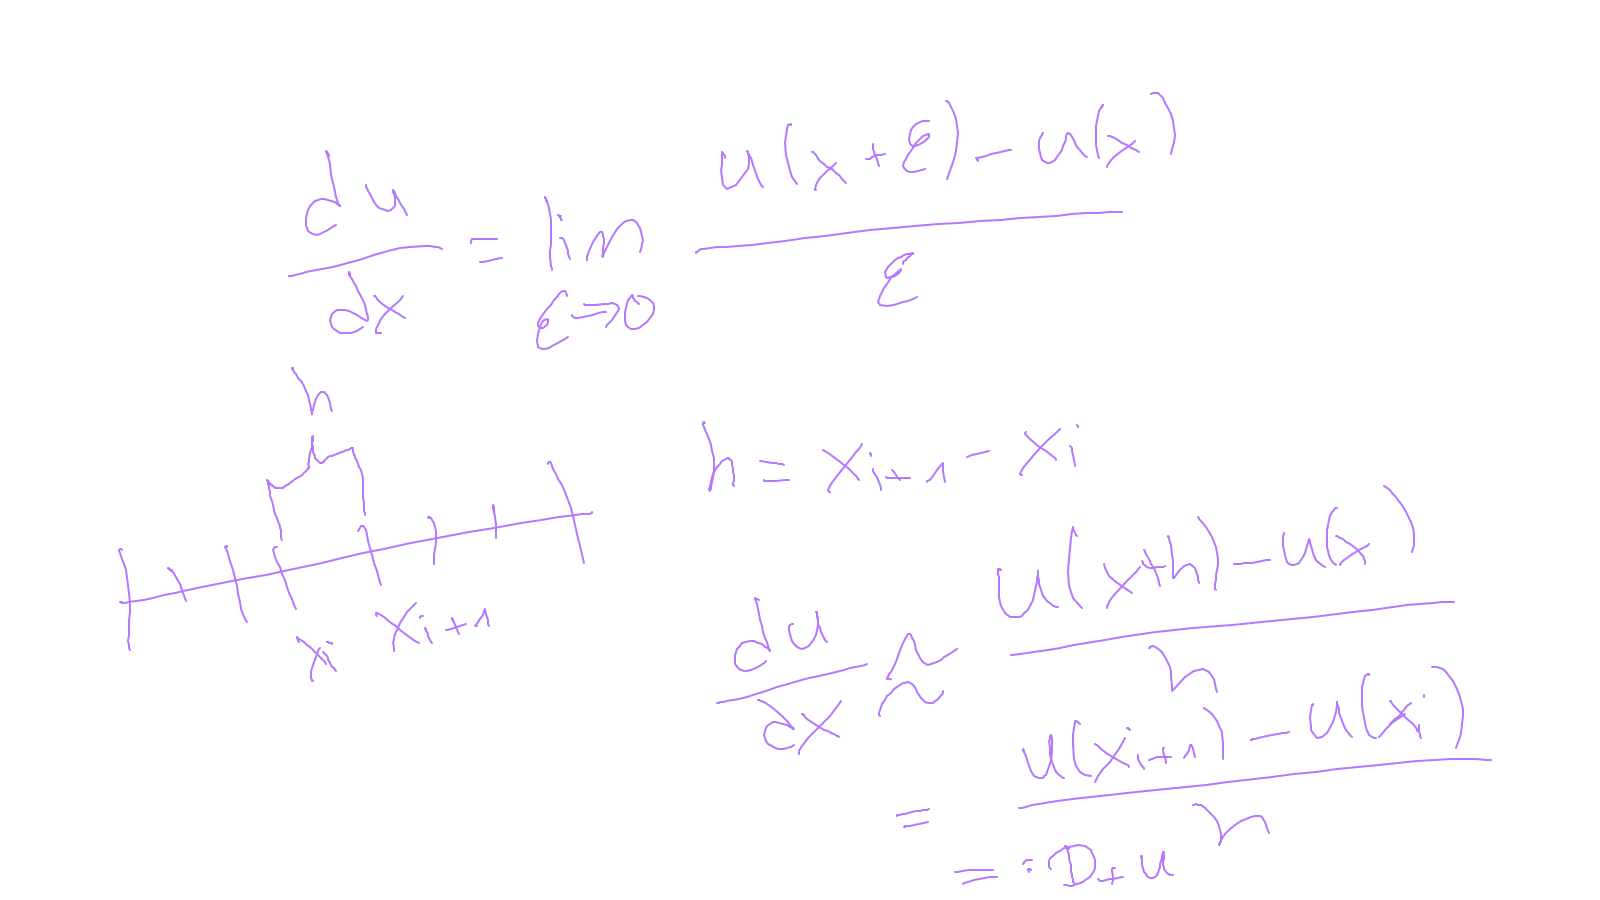 du/dx = lim ε→0 (u(x+ε) - u(x))/ε
h
h = xi+1 - xi
xi xi+1
du/dx ≈ (u(x+h) - u(x))/h
= (u(xi+1) - u(xi))/h
=: D+u